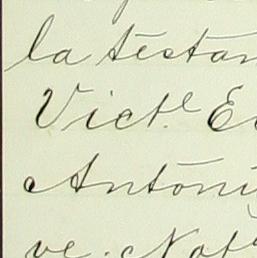 la testan
Vict.e E
Antoni
ve. Not